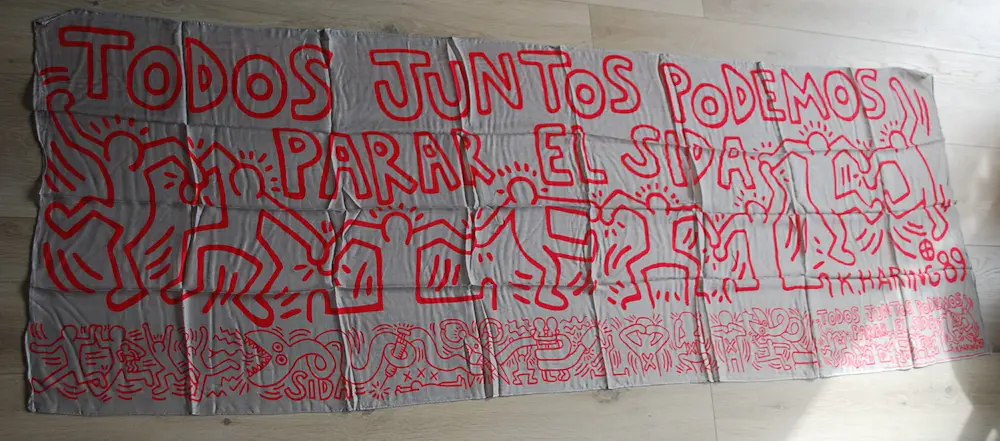 TODOS JUNTOS PODEMOS
PARAR EL SIDA
K HARING 89
SIDA
TODOS JUNTOS PODEMOS
PARAR EL SIDA